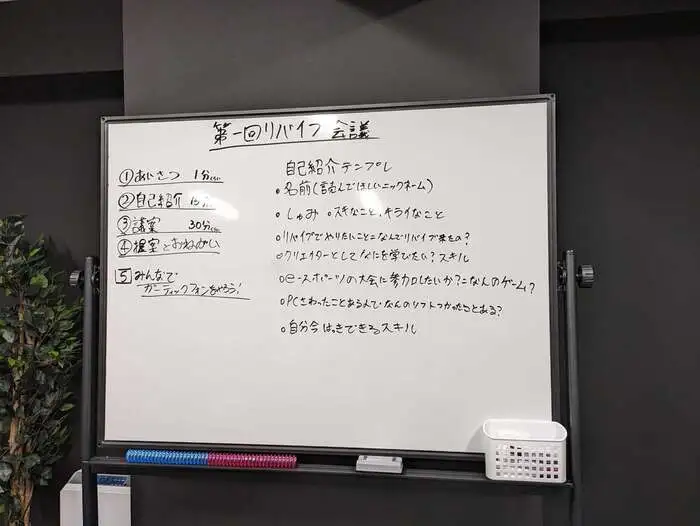 第一回リバイブ会議
①あいさつ 1分
②自己紹介 15分
③議案 30分
④提案とおねがい
5 みんなで
ガーティックフォンをやろう!
自己紹介テンプレ
○名前(読んでほしいニックネーム)
○しゅみ ○スキなこと、キライなこと
○リバイブでやりたいこと=なんでリバイブ来たの?
○クリエイターとしてなにを学びたい?スキル
○e-スポーツの大会に参加したいか?=なんのゲーム?
○PCさわったことある人で、なんのソフトつかったことある?
○自分今はっきできるスキル